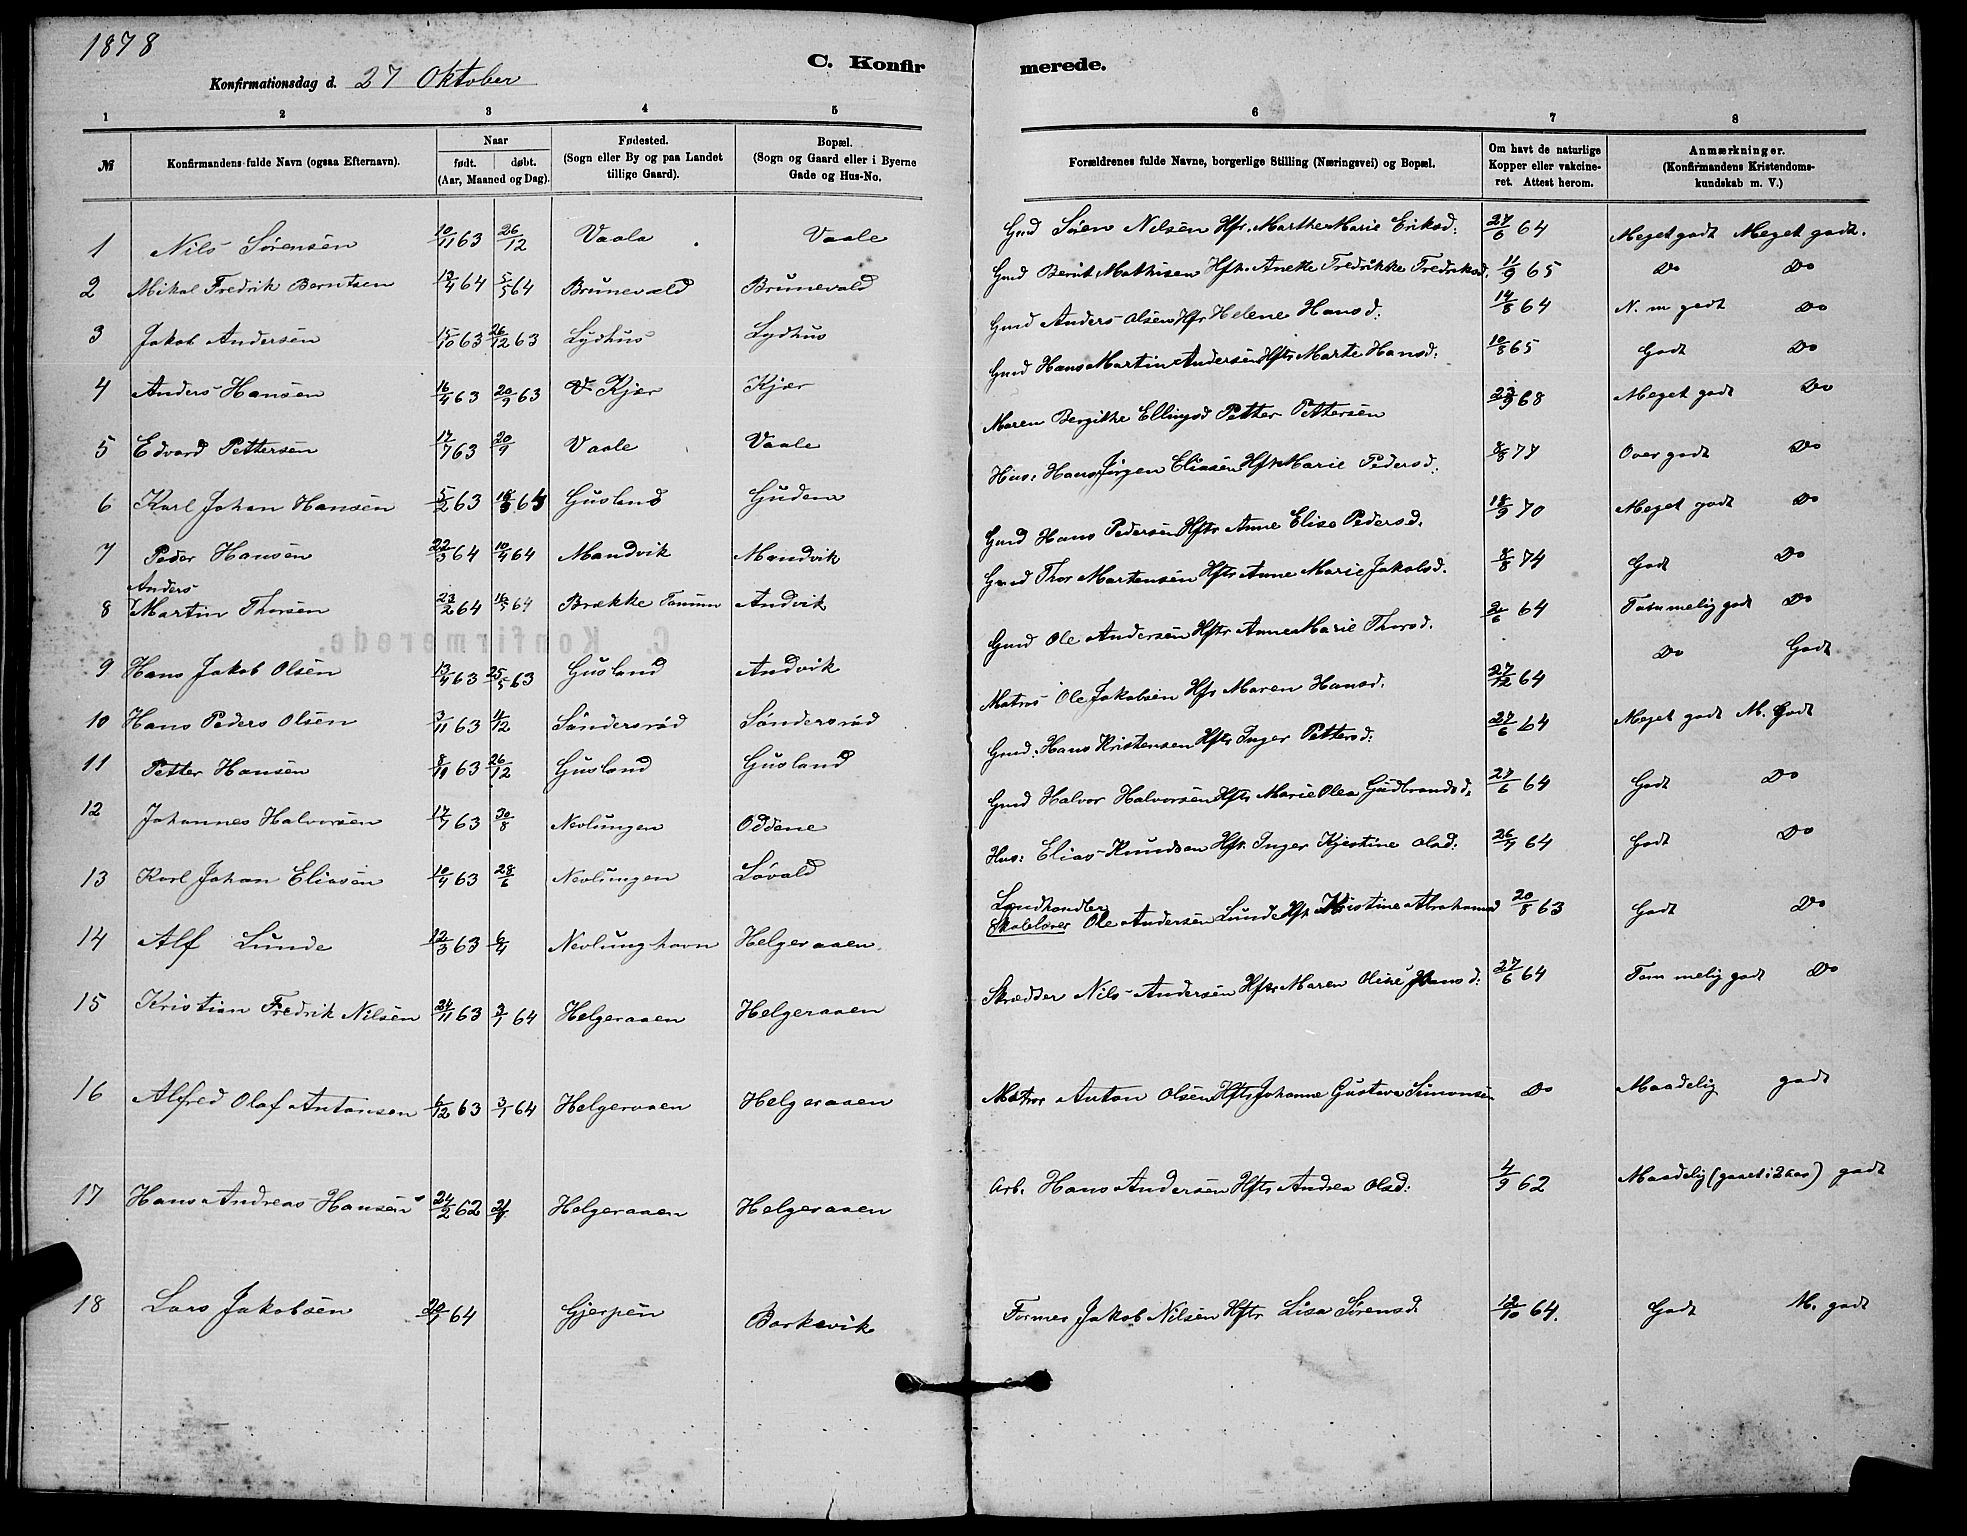 1878
C. Konfir merede.
Konfirmationsdag d. 27 Oktober
1 2 3 4 5 6 7 8
№ Konfirmandens fulde Navn (ogsaa Efternavn). Naar født. døbt. (Aar, Maaned og Dag). Fødested. (Sogn eller By og paa Landet tillige Gaard). Bopæl. (Sogn og Gaard eller i Byerne Gade og Hus-No. Forældrenes fulde Navne, borgerlige Stilling (Næringsvei) og Bopæl. Om havt de naturlige Kopper eller vakcineret. Attest herom. Anmærkninger. (Konfirmandens Kristendomskundskab m. V.)
1 Nils Sørensen 10/11 63 26/12 Vaale Vaale Gmd Søren Nilsen Hfr. Marthe Marie Eriksd: 27/6 64 Meget godt Meget godt.
2 Mikal Fredrik Berntsen 13/4 64 5/5 64 Brunevald Brunevald Gmd Bernt Mathisen Hfh. Anette Fredrikke Fredriksd. 11/9 65 Do Do
3 Jakob Andersen 15/10 63 26/12 63 Lydhus Lydhus Gmd Anders Olsen Hfr Helene Hansd: 14/8 64 N. m godt Do
4 Anders Hansen 16/4 63 20/9 63 Kjær Kjær Gmd Hans Martin Andersen Hfts Marte Hansd: 10/8 65 Godt Do
5 Edvard Pettersen 17/7 63 20/9 Vaale Vaale Maren Bergithe Ellingsd Petter Pettersen 23/9 68 Meget godt Do
6 Karl Johan Hansen 5/2 63 Gusland Gudem Hus: Hans Jørgen Eliasen Hft Marie Pedersd: 8/8 77 Over godt Do
7 Peder Hansen 22/3 64 10/4 64 Mandvik Mandvik Gmd Hans Pedersen Hftr Anne Elise Pedersd. 18/9 70 Meget godt Do
Anders
8 Martin Thorsen 23/2 64 16/5 64 Brække Tanum Andvik Gmd Thor Martensen Hfts Anne Marie Jakobsd. 8/8 74 Godt Do
9 Hans Jakob Olsen 13/4 63 25/5 63 Gusland Andvik Gmd Ole Andersen Hftr Anne Marie Thorsd. 2/6 64 Tommelig godt Do
10 Hans Peders Olsen 3/11 63 Søndersrød Søndersrød Matros Ole Jakobsen Hfs Maren Hansd. 27/12 64 Do Godt
11 Petter Hansen 8/11 63 26/12 Gusland Gusland Gmd: Hans Kristensen Hfts Inger Pettersd: 27/6 64 Meget godt M. Godt
12 Johannes Halvorsen 17/7 63 30/8 Nevlungen Oddene Gmd Halvor Halvorsen Hfts Marie Olea Gudbrandsd. 27/6 64 Godt Do
13 Karl Johan Eliasen 10/4 63 28/6 Nevlungen Løvald Hus: Elias Knudsen Hft. Inger Kjestine Olsd: 26/7 64 Godt Do
Landhandler
14 Alf Lunde 12/3 63 6/4 Nevlunghavn Helgeraaen. Skolelærer Ole Andersen Lunde Hft Kristine Abrahamsd 20/8 63 Godt Do
15 Kristian Fredrik Nilsen 24/11 63 3/1 64 Helgeraaen Helgeraaen Skrædder Nils Andersen Hftr Maren Olise Hansd: 27/6 64 Tommelig godt Do
16 Alfred Olaf Antonsen 6/12 63 3/1 64 Helgeraaen Helgeraaen Matros Anton Olsen Hfts Johanne Gustava Simonsen Do Maadelig godt
17 Hans Andreas Hansen 24/2 62 Helgeraaen Helgeraaen Arb. Hans Andersen Hfts Andrea Olsd: 4/9 62 Maadelig (gaaet i 2 Aar) godt
18 Lars Jakobsen 20/1 64 Gjerpen Barkevik Formes Jakob Nilsen Hftr Lisa Sørensd. 12/10 64. Godt M. godt